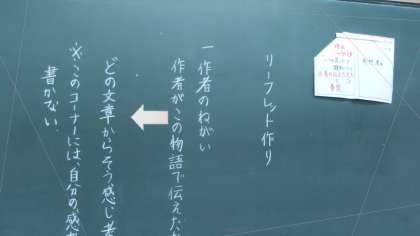 リーフレット作り
一 作者のねがい
作者がこの物語で伝えた
どの文章からそう感じ考
※このコーナーには、自分の感
書かない